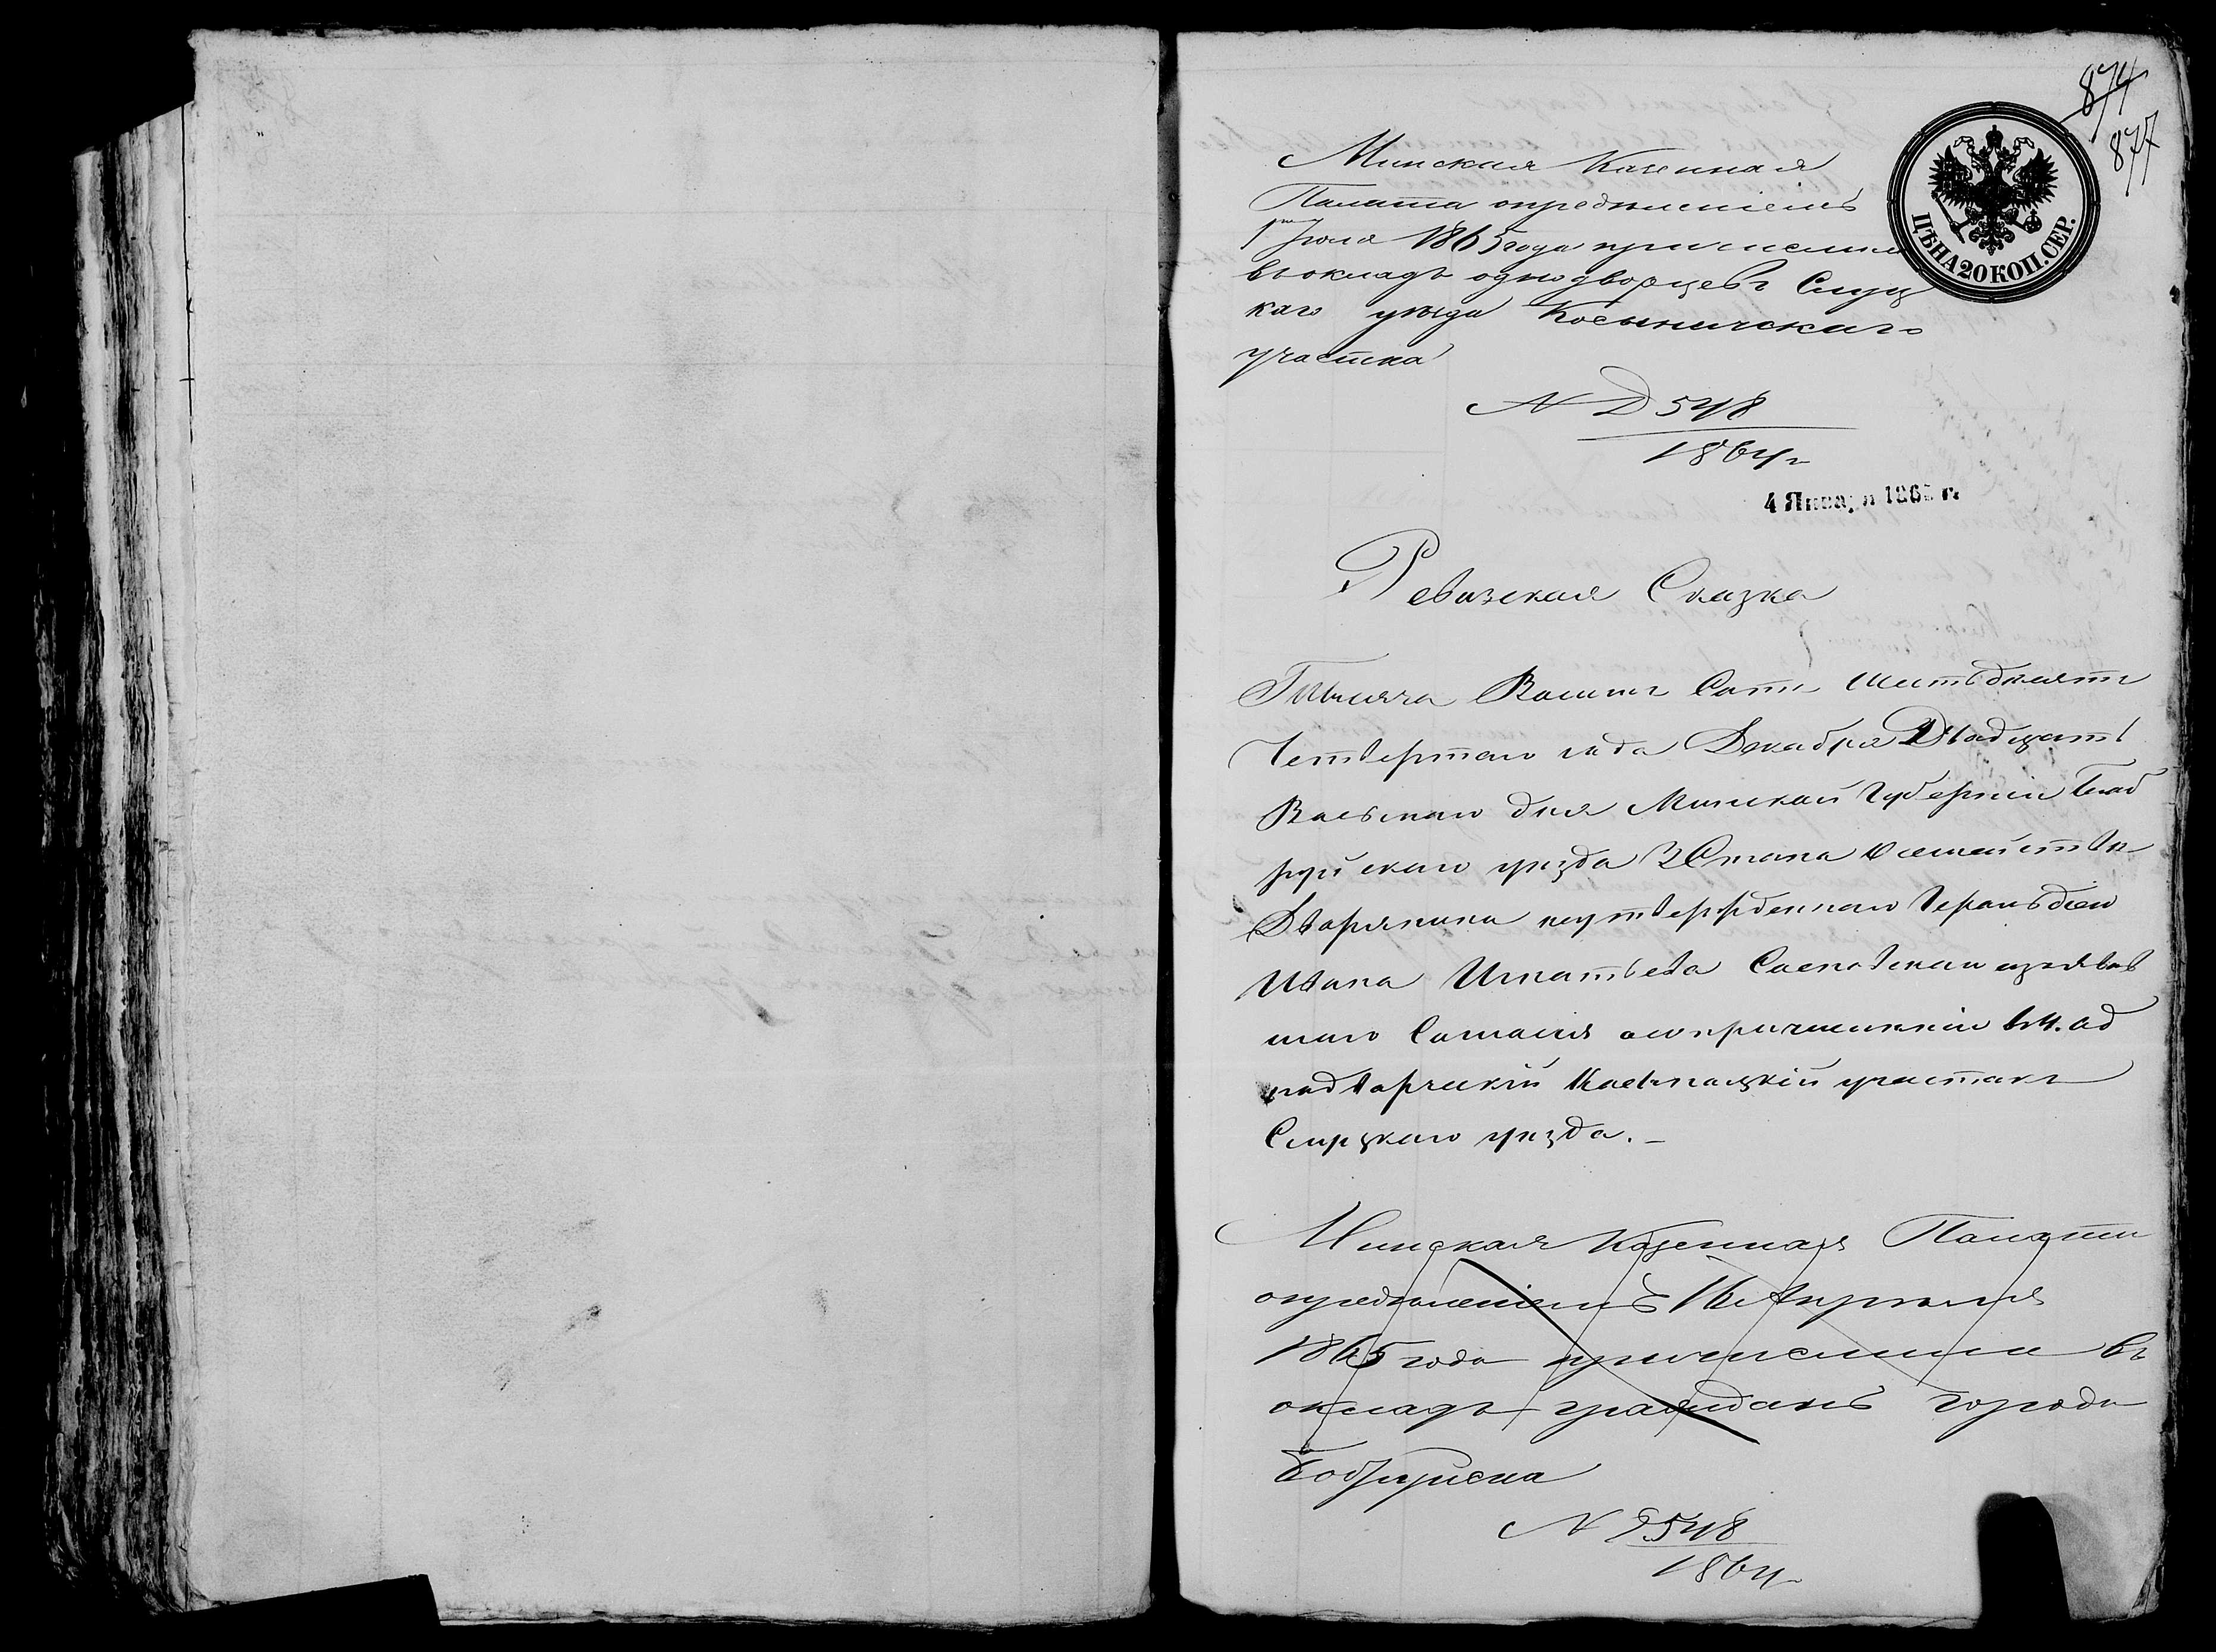 874
877
ЦѢНА 20 КОП. СЕР.
Минская Казенная
Палата опредѣленіемъ
1го Іюля 1865 года причислила
въ окладъ однодворцевъ Слуц
каго уѣзда Косыничскаго
участка
N Д 548
1864 г
4 Января 1865 г.
Ревизская Сказка
Тысяча Восемь Сотъ Шестьдесятъ
Четвертаго года Декабря Двадцать
Восьмаго дня Минской Губерніи Боб
руйскаго уѣзда 3 Стана О семействѣ
Дворянина неутвержденнаго Герольдіею
Ивана Игнатьева изъявив
шаго Согласіе о причисленіи въ од
нодворческій участокъ
Слуцкаго уѣзда. –
Минская Казенная Палата
опредѣленіемъ 16 Апрѣля
1865 года причислила въ
окладъ гражданъ города
Бобруйска
N Д 548
1864